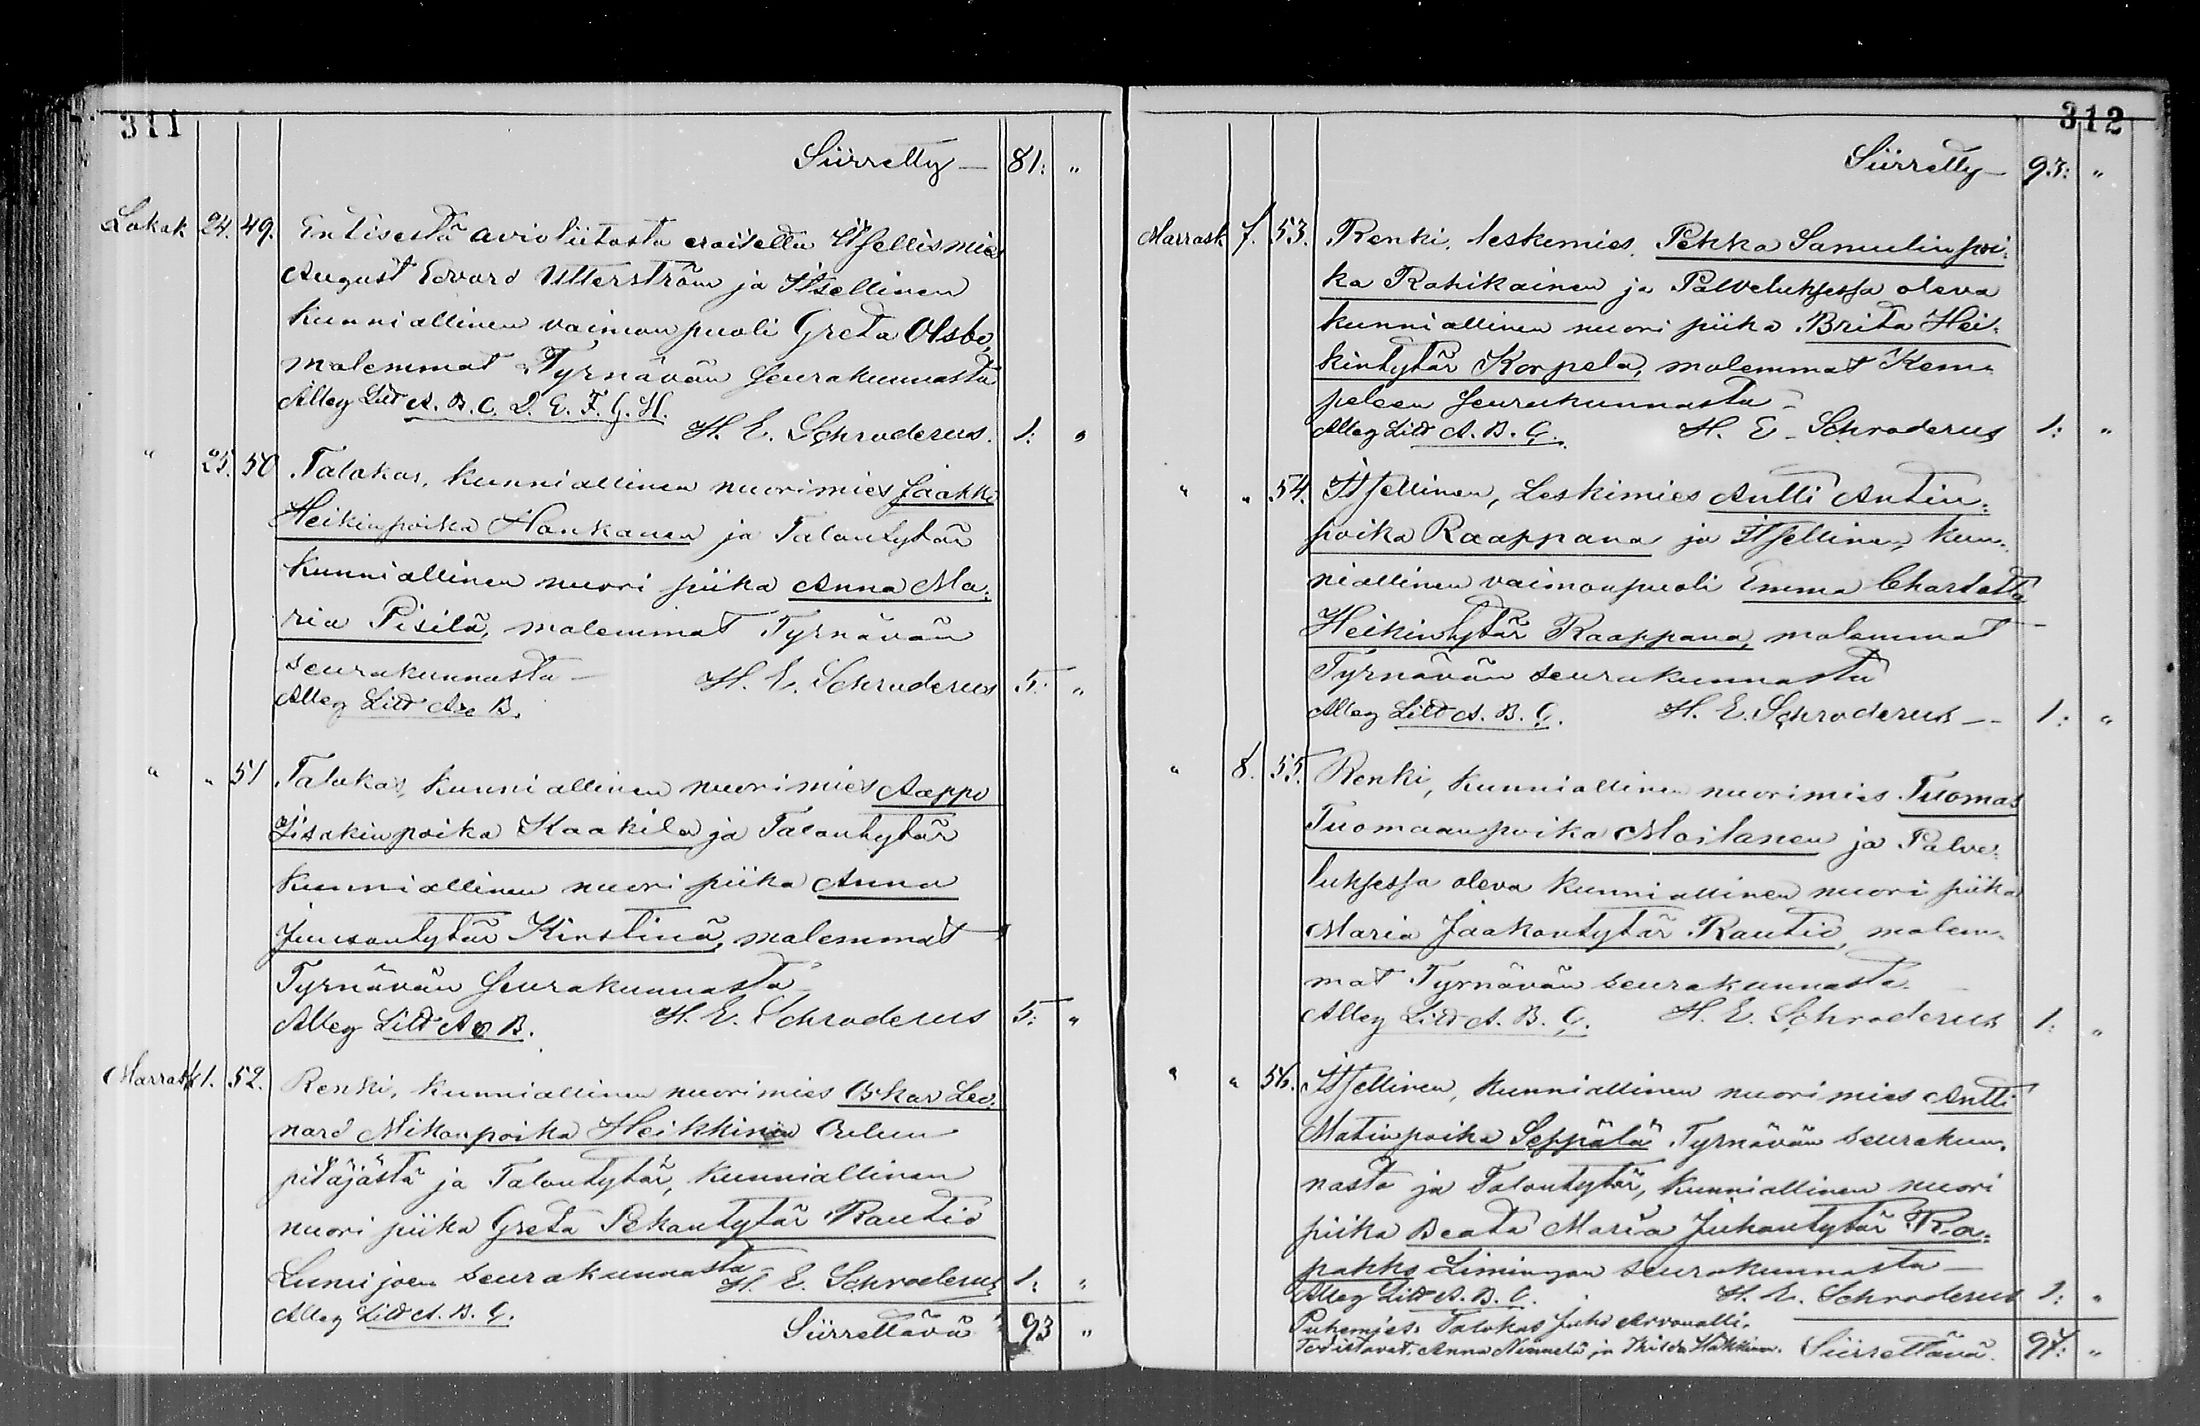 311
Siirretty — 81: "
Lokak 24. 49. Entisestä avioliitosta eroitettu Itsellismies
August Edvard Utterström ja Itsellinen
kunniallinen vaimonpuoli Greta Olsbo,
molemmat Tyrnävän seurakunnasta
Alleg Litt A. B. C. D. E. F. G. H.
H. E. Schroderus. 1: "
" 25. 50 Talokas, kunniallinen nuorimies Jaakko
Heikinpoika Honkanen ja Talontytär
kunniallinen nuori piika Anna Ma-
ria Pisilä, molemmat Tyrnävän
seurakunnasta — H. E. Schroderus 5: "
Alleg Litt A & B.
" " 51 Talokas, kunniallinen nuorimies Aappo
Iisakinpoika Kaakila ja Talontytär
kunniallinen nuori piika Anna
Juusontytär Kirstinä, molemmat
Tyrnävän seurakunnasta
Alleg Litt A & B. H. E. Schroderus 5: "
Marrask 1. 52. Renki, kunniallinen nuorimies Oskar Leo-
nard Mikonpoika Heikkinen Oulun
pitäjästä ja Talontytär, kunniallinen
nuori piika Greta Pekantytär Rautio
Lumijoen seurakunnasta — H. E. Schroderus 1: "
Alleg Litt A. B. C. Siirrettävä 93 "
312
Siirretty — 93: "
Marrask 7. 53. Renki, leskimies, Pekka Samulinpoi-
ka Rahikainen ja Palveluksessa oleva
kunniallinen nuori piika Brita Hei-
kintytär Korpela, molemmat Kem-
peleen seurakunnasta —
Alleg Litt A. B. C. H. E. Schroderus 1: "
" " 54. Itsellinen, Leskimies Antti Antin-
poika Raappana ja Itsellinen, kun-
niallinen vaimonpuoli Emma Charlotta
Heikintytär Raappana, molemmat
Tyrnävän seurakunnasta
Alleg Litt A. B. C. H. E. Schroderus — 1: "
" 8. 55. Renki, kunniallinen nuorimies Tuomas
Tuomaanpoika Moilanen ja Palve-
luksessa oleva kunniallinen nuori piika
Maria Jaakontytär Rautio, molem-
mat Tyrnävän seurakunnasta. —
Alleg Litt A. B. C. H. E. Schroderus 1: "
" " 56. Itsellinen, kunniallinen nuorimies Antti
Matinpoika Seppälä Tyrnävän seurakun-
nasta ja Talontytär, kunniallinen nuori
piika Beata Maria Juhontytär Ra-
pakko Limingan seurakunnasta —
Alleg Litt A. B. C. H. E. Schroderus 1: "
Puhemies: Talokas Juho Arvonalli.
Todistavat: Anna Niemelä ja Hilda Häkkinen. Siirrettävä. 97: "